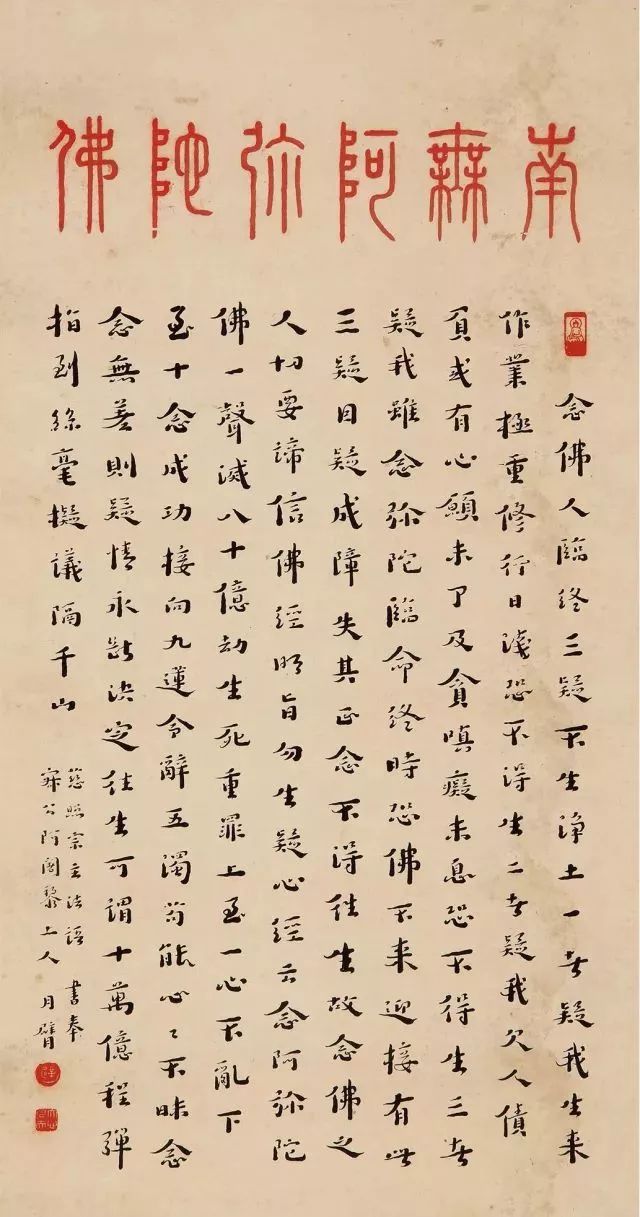 南無阿弥陀佛
念佛人臨终三疑不生淨土一者疑我生来
作業極重修行日淺恐不得生二者疑我欠人債
負或有心願未了及貪嗔癡未息恐不得生三者
疑我雖念弥陀臨命终時恐佛不来迎接有此
三疑因疑成障失其正念不得往生故念佛之
人切要諦信佛經明旨勿生疑心經云念阿弥陀
佛一聲滅八十億劫生死重罪上至一心不亂下
至十念成功接向九蓮令辭五濁苟能心〻不昧念
念無差則疑情永斷决定往生可謂十萬億程彈
指到絲毫擬議隔千山
慈照宗主法語 書奉
寂公阿闍黎上人 月臂